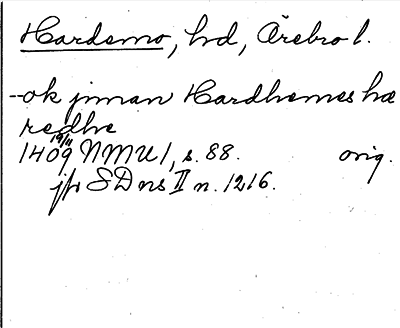 Hardemo, hd, Örebro l.
-ok jnnan Hardhemes hæ
redhe
19/11
1409 NMU 1, s. 88. orig.
jfr SD ns II n. 1216.